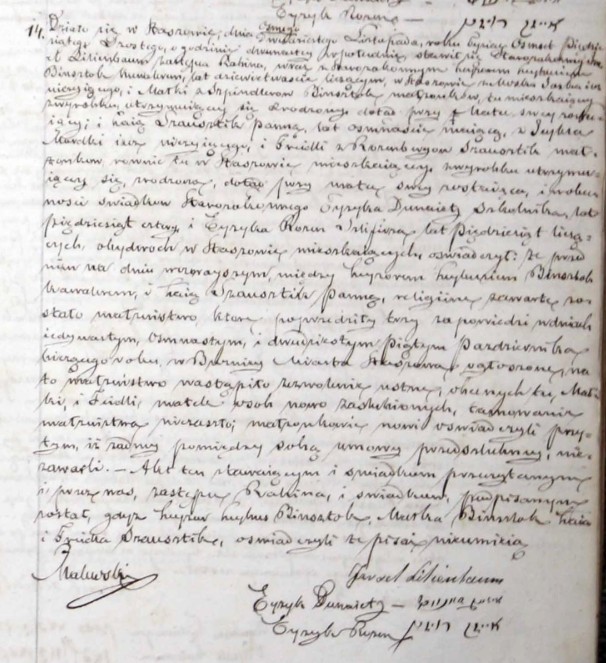 Eyzyk Rozen אייזק רויזן
14. Działo się w Staszowie, dnia ósmego
Listopada, roku tysiąc ośmset pięćdzie
siątego szóstego, o godzinie dwunastej w południe, stawił się Starozakonny
Lilienbaum zastępca Rabina, wraz z Starozakonnym
Binsztok kawalerem, lat dziewietnaście liczącym, w Staszowie
i Matki z Binsztok małżonków, tu mieszkającej
z wyrobku utrzymującej się zrodzony, dotąd przy Matce swej zosta
jący; i Szausztik Panną, lat ośmnaście mającą, z
Mordki już nieżyjącego, i Freidli z Rozenbergów Szausztik mał
żonków, równie tu w Staszowie mieszkającej z wyrobku utrzymu
jącej się, zrodzoną, dotąd przy matce swej zostającą, i w obec
ności świadków Starozakonnego Eyzyka Dunaietz Szkolnika, lat
pięćdziesiąt cztery, i Eyzyka Rozen lat pięćdziesiąt liczą
cych, obydwóch w Staszowie mieszkających, oświadczył: że przed
nim na dniu wczorayszym, między Binsztok
kawalerem, i Szausztik Panną, religijne zawarte zo
stało małżeństwo, które poprzedziły trzy zapowiedzi w dniach
iedynastym, ośmnastym, i dwudziestym piątym Października
bieżącego roku, w Bóżnicy Miasta Staszowa ogłoszone, na
to małżeństwo nastąpiło zezwolenie ustne, obecnych tu,
i Freidli, matek osób nowo zaślubionych, tamowanie
małżeństwa nie zaszło; małżonkowie nowi oświadczyli przy
tym, iż żadnej pomiędzy sobą umowy przedślubnej nie
zawarli. — Akt ten stawającym i świadkom przeczytany
i przez nas, zastępcę Rabina, i świadków, podpisanym
został, gdyż Binsztok, Matka Binsztok
i Freidla Szausztik, oświadczyli że pisać nieumieją
Malewski Israel Lilienbaum
Eyzyk Dunaietz —
Eyzyk Rozen אייזק רויזן